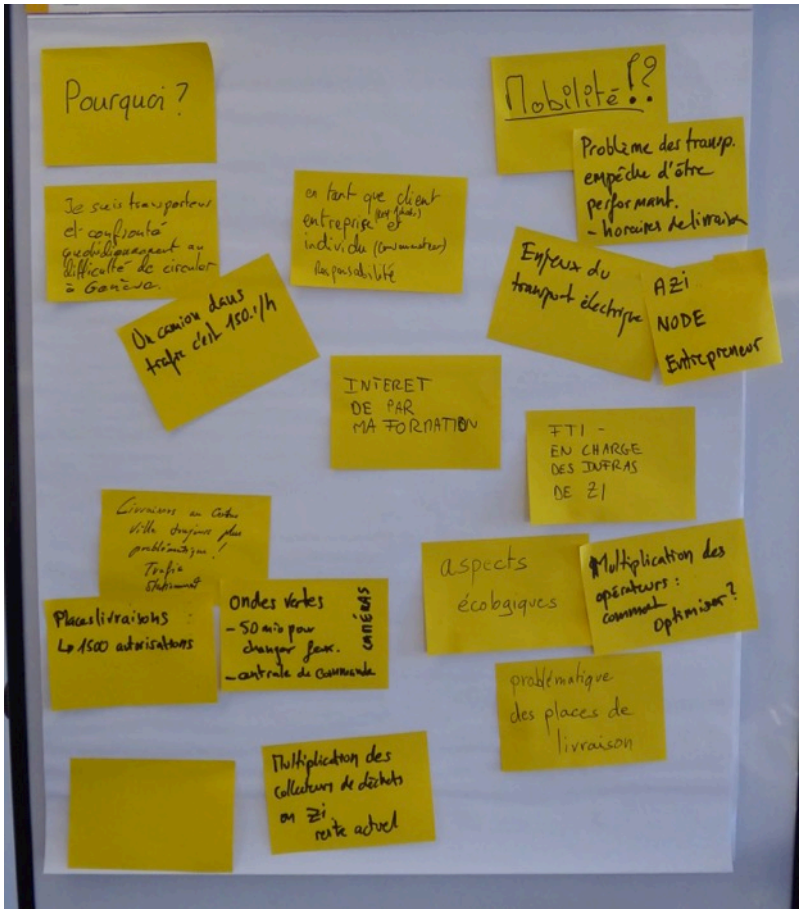 Pourquoi ?
Mobilité !?
Problème des transp.
empêche d'être
performant.
- horaires de livraison
Je suis transporteur
et confronté
quotidiennement au
difficulté de circuler
à Genève.
en tant que client
entreprise et
individu (consommateur)
Responsabilité
Enjeux du
transport électrique
AZi
NODE
Entrepreneur
Un camion dans
trafic c'est 150.-/h
INTERET
DE PAR
MA FORMATION
FTI -
EN CHARGE
DES INFRAS
DE ZI
Livraisons au Centre
Ville toujours plus
problématique !
Trafic
Stationnement
Places livraisons :
↳ 1500 autorisations
Ondes vertes
- 50 mio pour
changer feux.
- centrale de commande
CAMÉRAS
aspects
écologiques
Multiplication des
opérateurs :
comment
optimiser ?
problématique
des places de
livraison
Multiplication des
collecteurs de déchets
en ZI
reste actuel